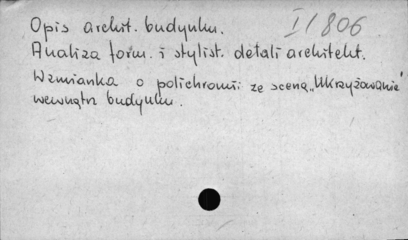 Opis archit. budynku. I/806
Analiza form. i stylist. detali architekt.
Wzmianka o polichromii ze sceną „Ukrzyżowanie"
wewnątrz budynku.